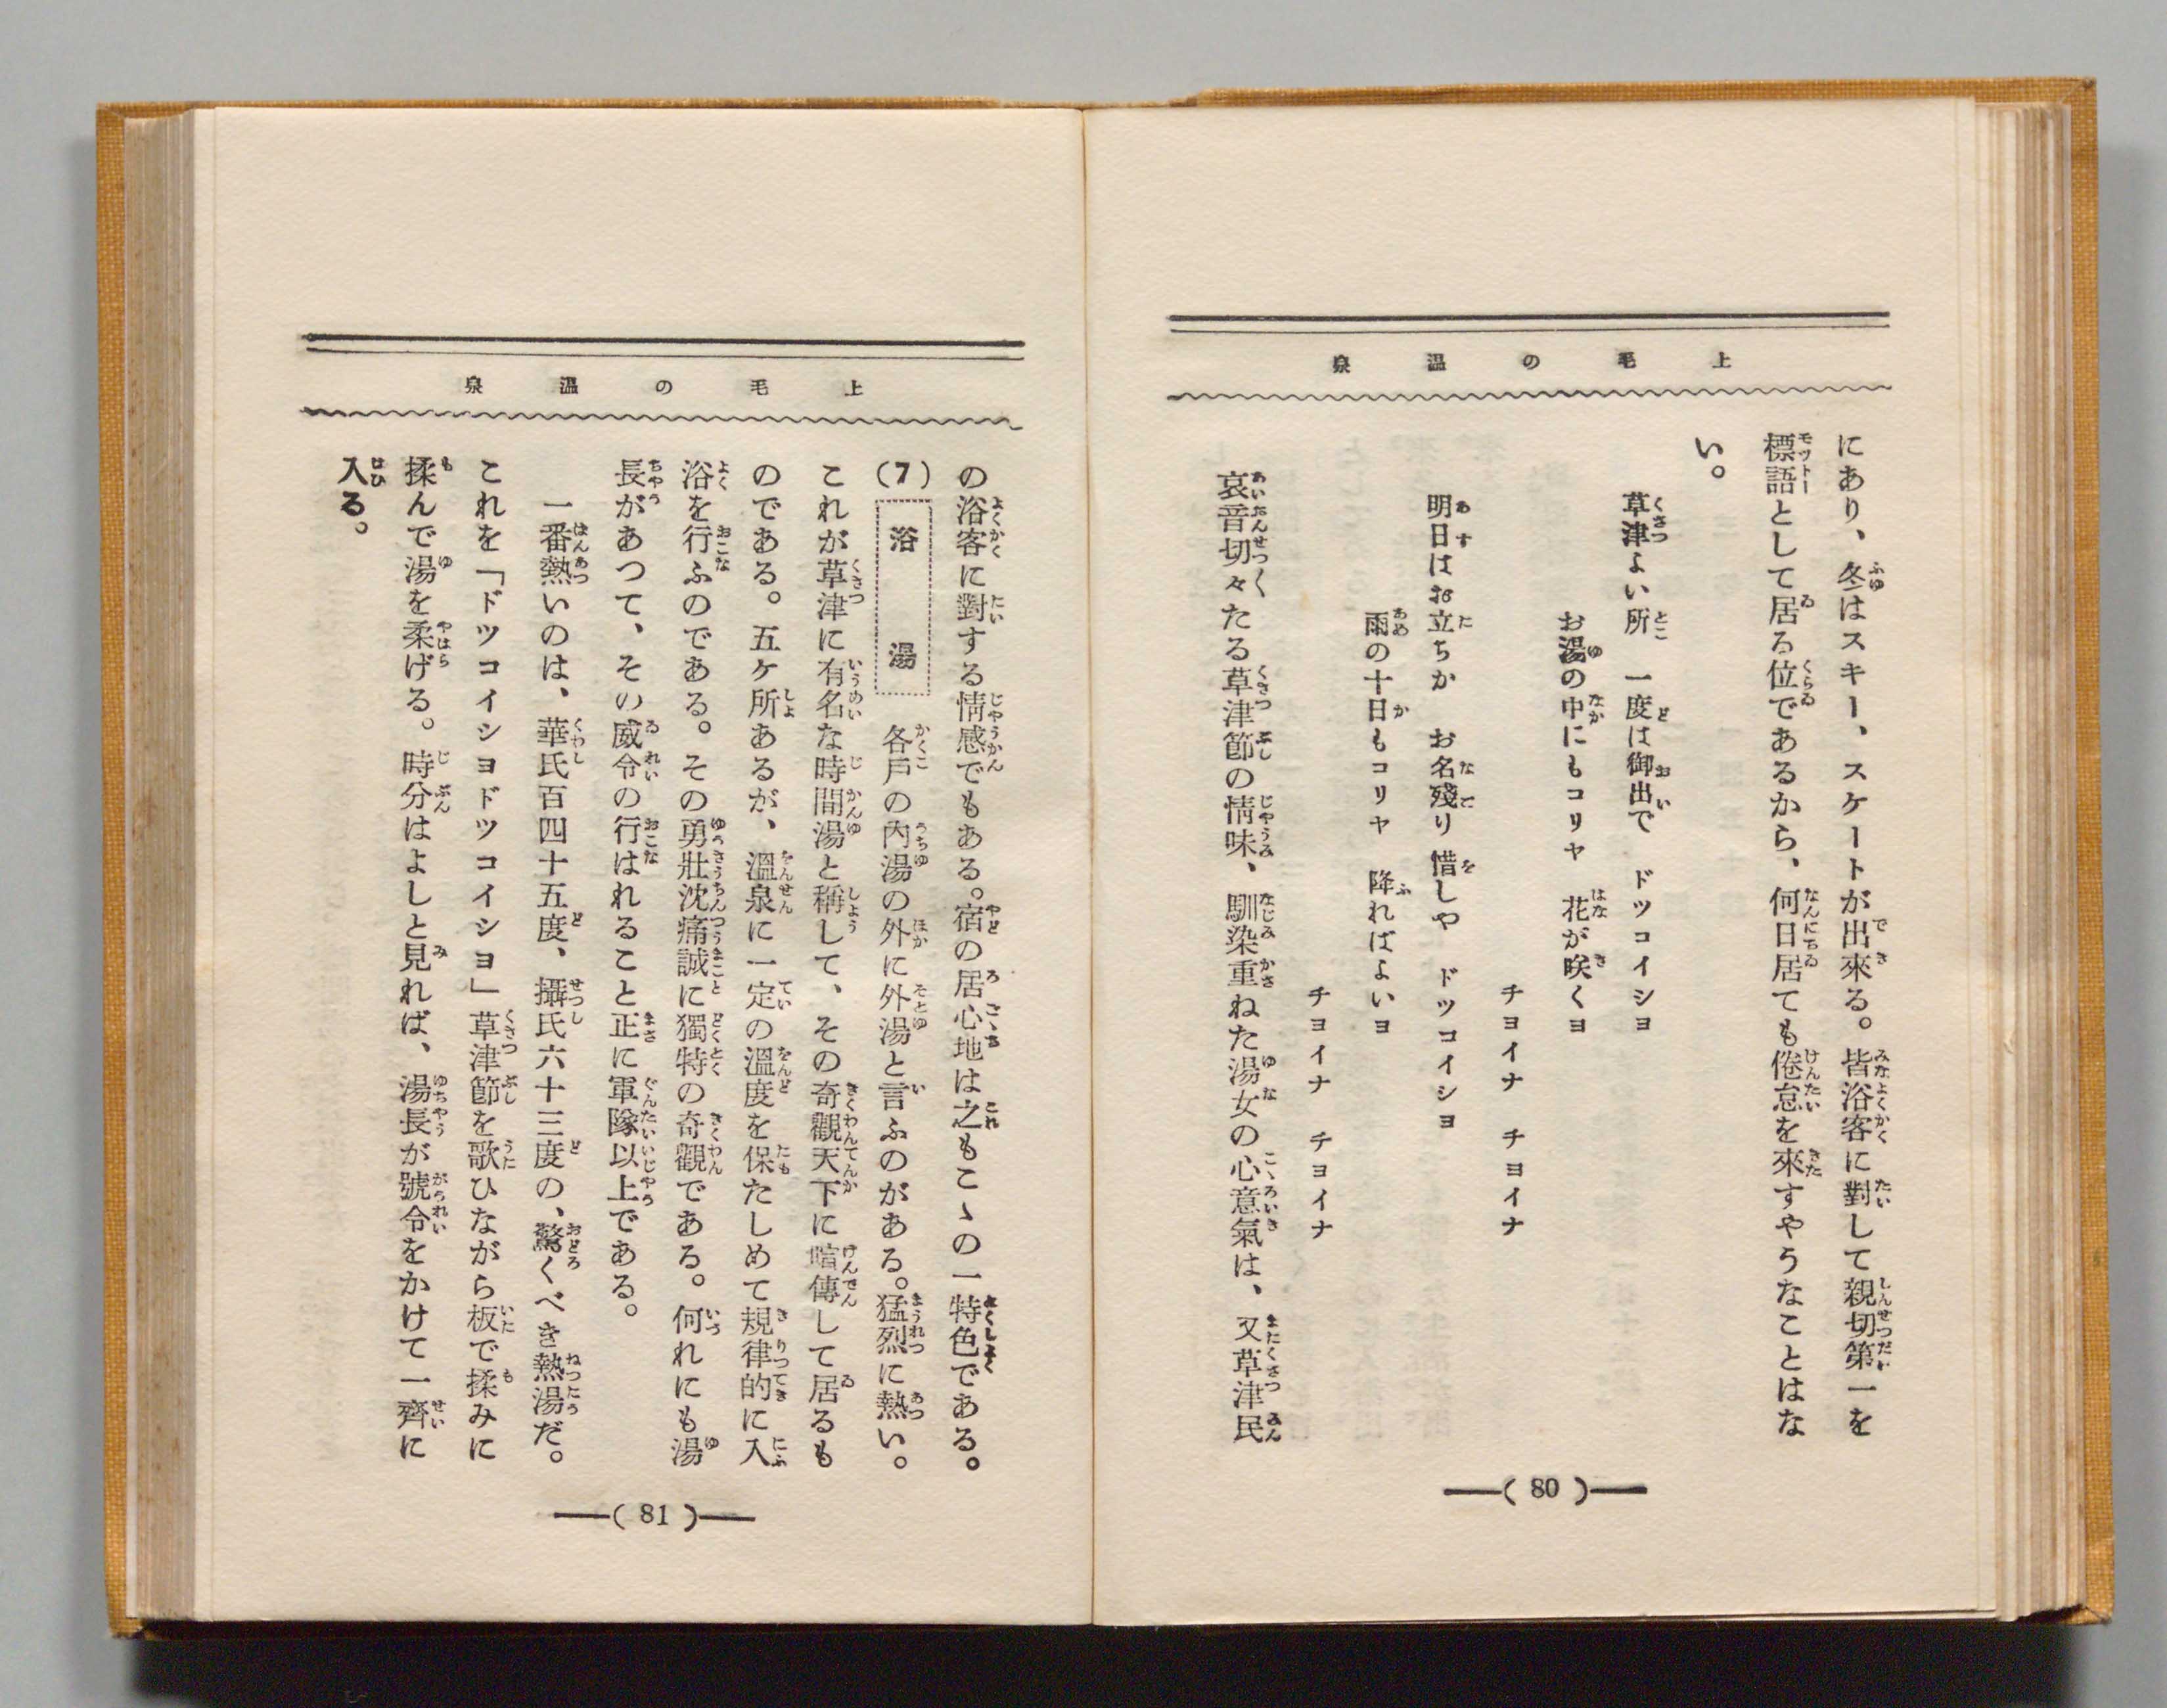 上毛の温泉
にあり、冬はスキー、スケートが出來る。皆浴客に對して親切第一を
標語として居る位であるから、何日居ても倦怠を來すやうなことはな
い。
草津よい所　一度は御出で　ドツコイシヨ
お湯の中にもコリヤ　花が咲くヨ
チヨイナ　チヨイナ
明日はお立ちか　お名殘り惜しや　ドツコイシヨ
雨の十日もコリヤ　降ればよいヨ
チヨイナ　チヨイナ
哀音切々たる草津節の情味、馴染重ねた湯女の心意氣は、又草津民
(80)
上毛の温泉
の浴客に對する情感でもある。宿の居心地は之もこゝの一特色である。
(7)　浴湯　各戶の內湯の外に外湯と言ふのがある。猛烈に熱い。
これが草津に有名な時間湯と稱して、その奇觀天下に喧傳して居るも
のである。五ケ所あるが、溫泉に一定の溫度を保たしめて規律的に入
浴を行ふのである。その勇壯沈痛誠に獨特の奇觀である。何れにも湯
長があつて、その威令の行はれること正に軍隊以上である。
一番熱いのは、華氏百四十五度、攝氏六十三度の、驚くべき熱湯だ。
これを「ドツコイシヨドツコイシヨ」草津節を歌ひながら板で揉みに
揉んで湯を柔げる。時分はよしと見れば、湯長が號令をかけて一齊に
入る。
(81)